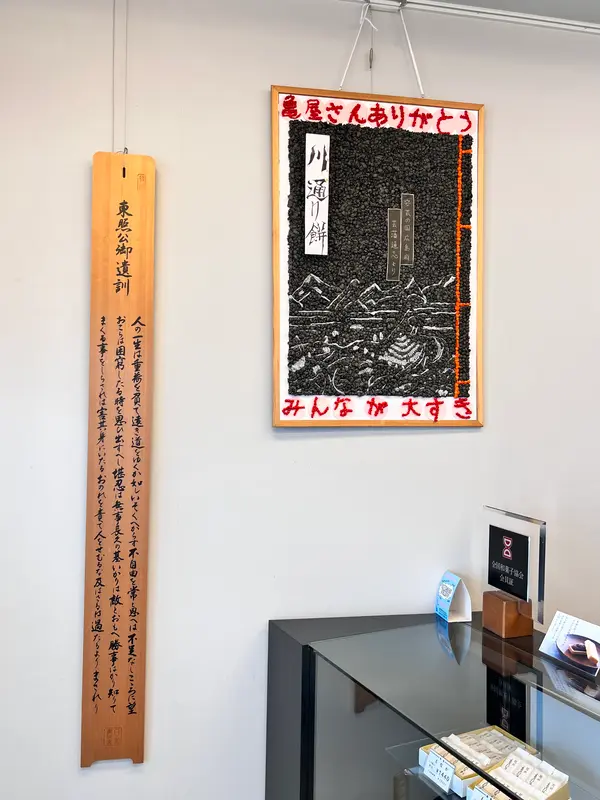 東照公御遺訓
人の一生は重荷を負て遠き道をゆくか如しいそくへからす不自由を常と思へは不足なしこころに望
おこらは困窮したる時を思ひ出すへし堪忍は無事長久の基いかりは敵とおもへ勝事はかり知りて
まくる事をしらされは害其身にいたるおのれを責て人をせむるな及はさるは過たるよりまされり
亀屋さんありがとう
川通り餅
みんなが大すき
全国和菓子協会
会員証